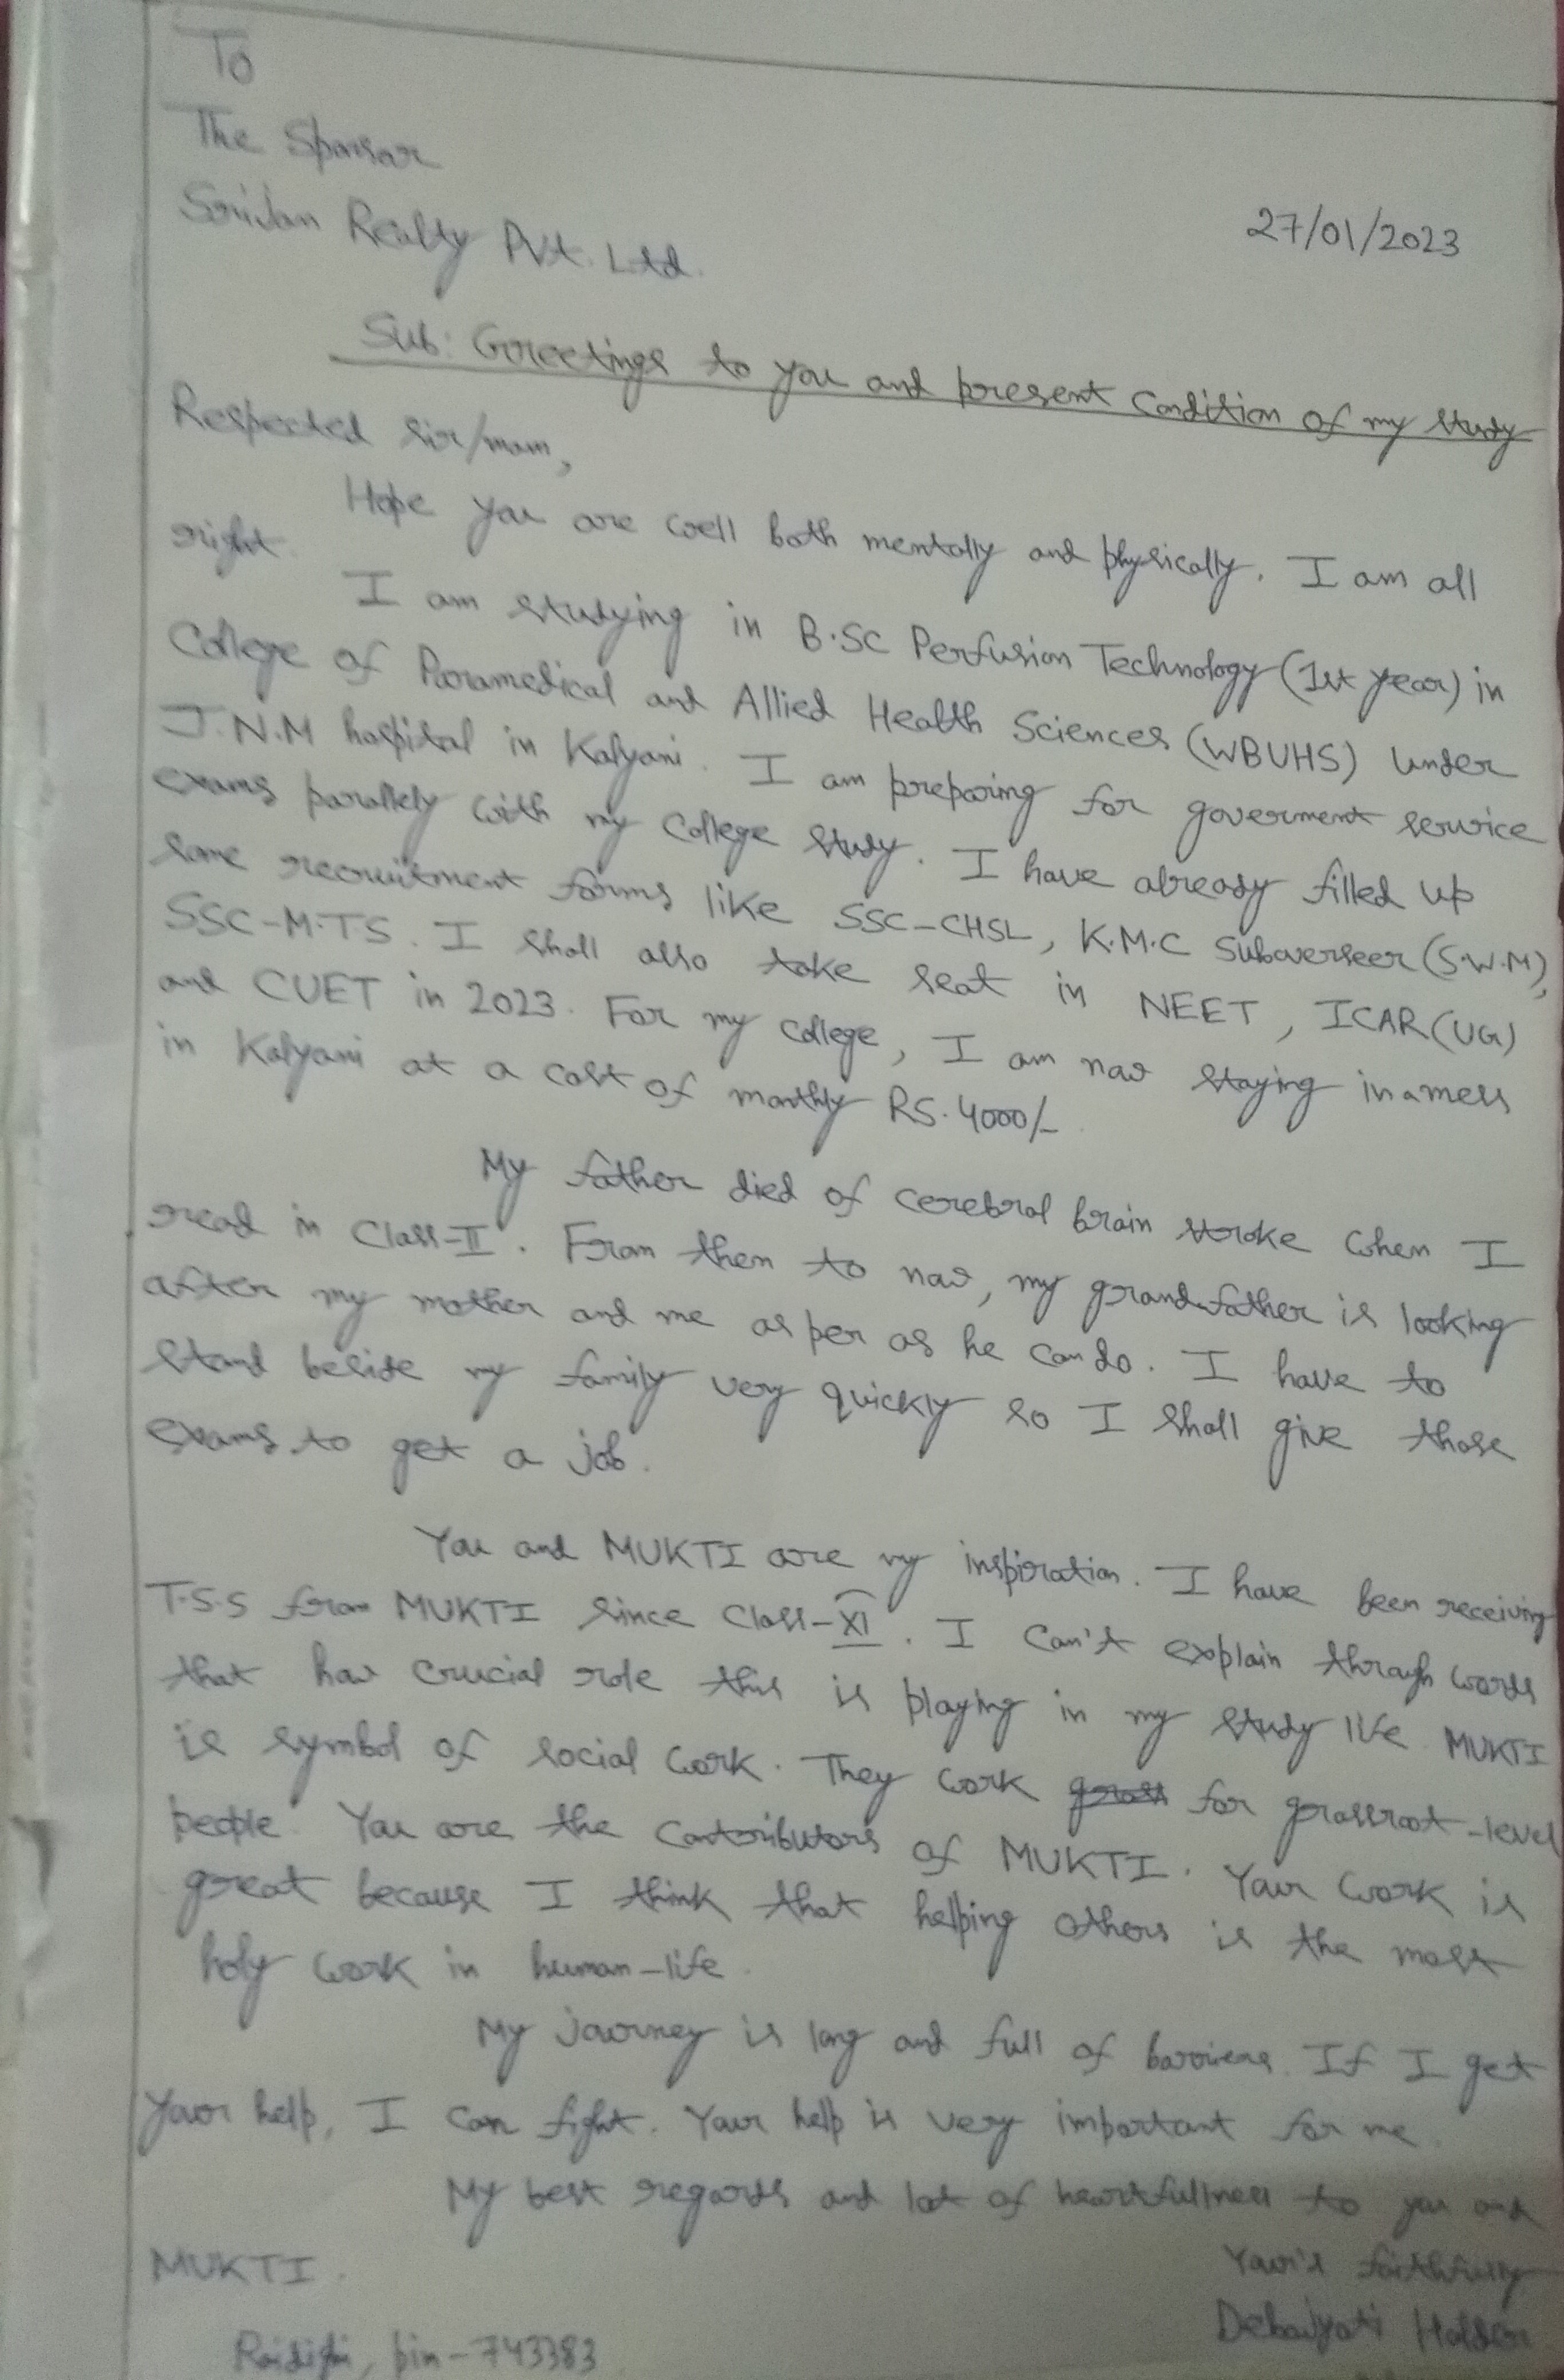 To
The Sponsor
Srijan Realty Pvt. Ltd.
27/01/2023
Sub: Greetings to you and present condition of my study
Respected sir/mam,
Hope you are well both mentally and physically. I am all
right.
I am studying in B.SC Perfusion Technology (1st year) in
College of Paramedical and Allied Health Sciences (WBUHS) under
J.N.M hospital in Kalyani. I am preparing for government service
exams parallely with my college study. I have already filled up
some recruitment forms like SSC-CHSL, K.M.C Suboverseer (S.W.M),
SSC-M.T.S. I shall also take seat in NEET, ICAR(UG)
and CUET in 2023. For my college, I am now staying in a mess
in Kalyani at a cost of monthly RS. 4000/-
My father died of cerebral brain stroke when I
read in Class-II. From then to now, my grandfather is looking
after my mother and me as per as he can do. I have to
stand beside my family very quickly so I shall give those
exams to get a job.
You and MUKTI are my inspiration. I have been receiving
T.S.S from MUKTI since Class-XI. I can't explain through words
that how crucial role this is playing in my study life. MUKTI
is symbol of social work. They work for grassroot-level
people. You are the contributors of MUKTI. Your work is
great because I think that helping others is the most
holy work in human-life.
My journey is long and full of barriers. If I get
your help, I can fight. Your help is very important for me.
My best regards and lot of heartfullness to you and
MUKTI.
Your's faithfully
Debajyoti Halder
Raidighi, pin-743383